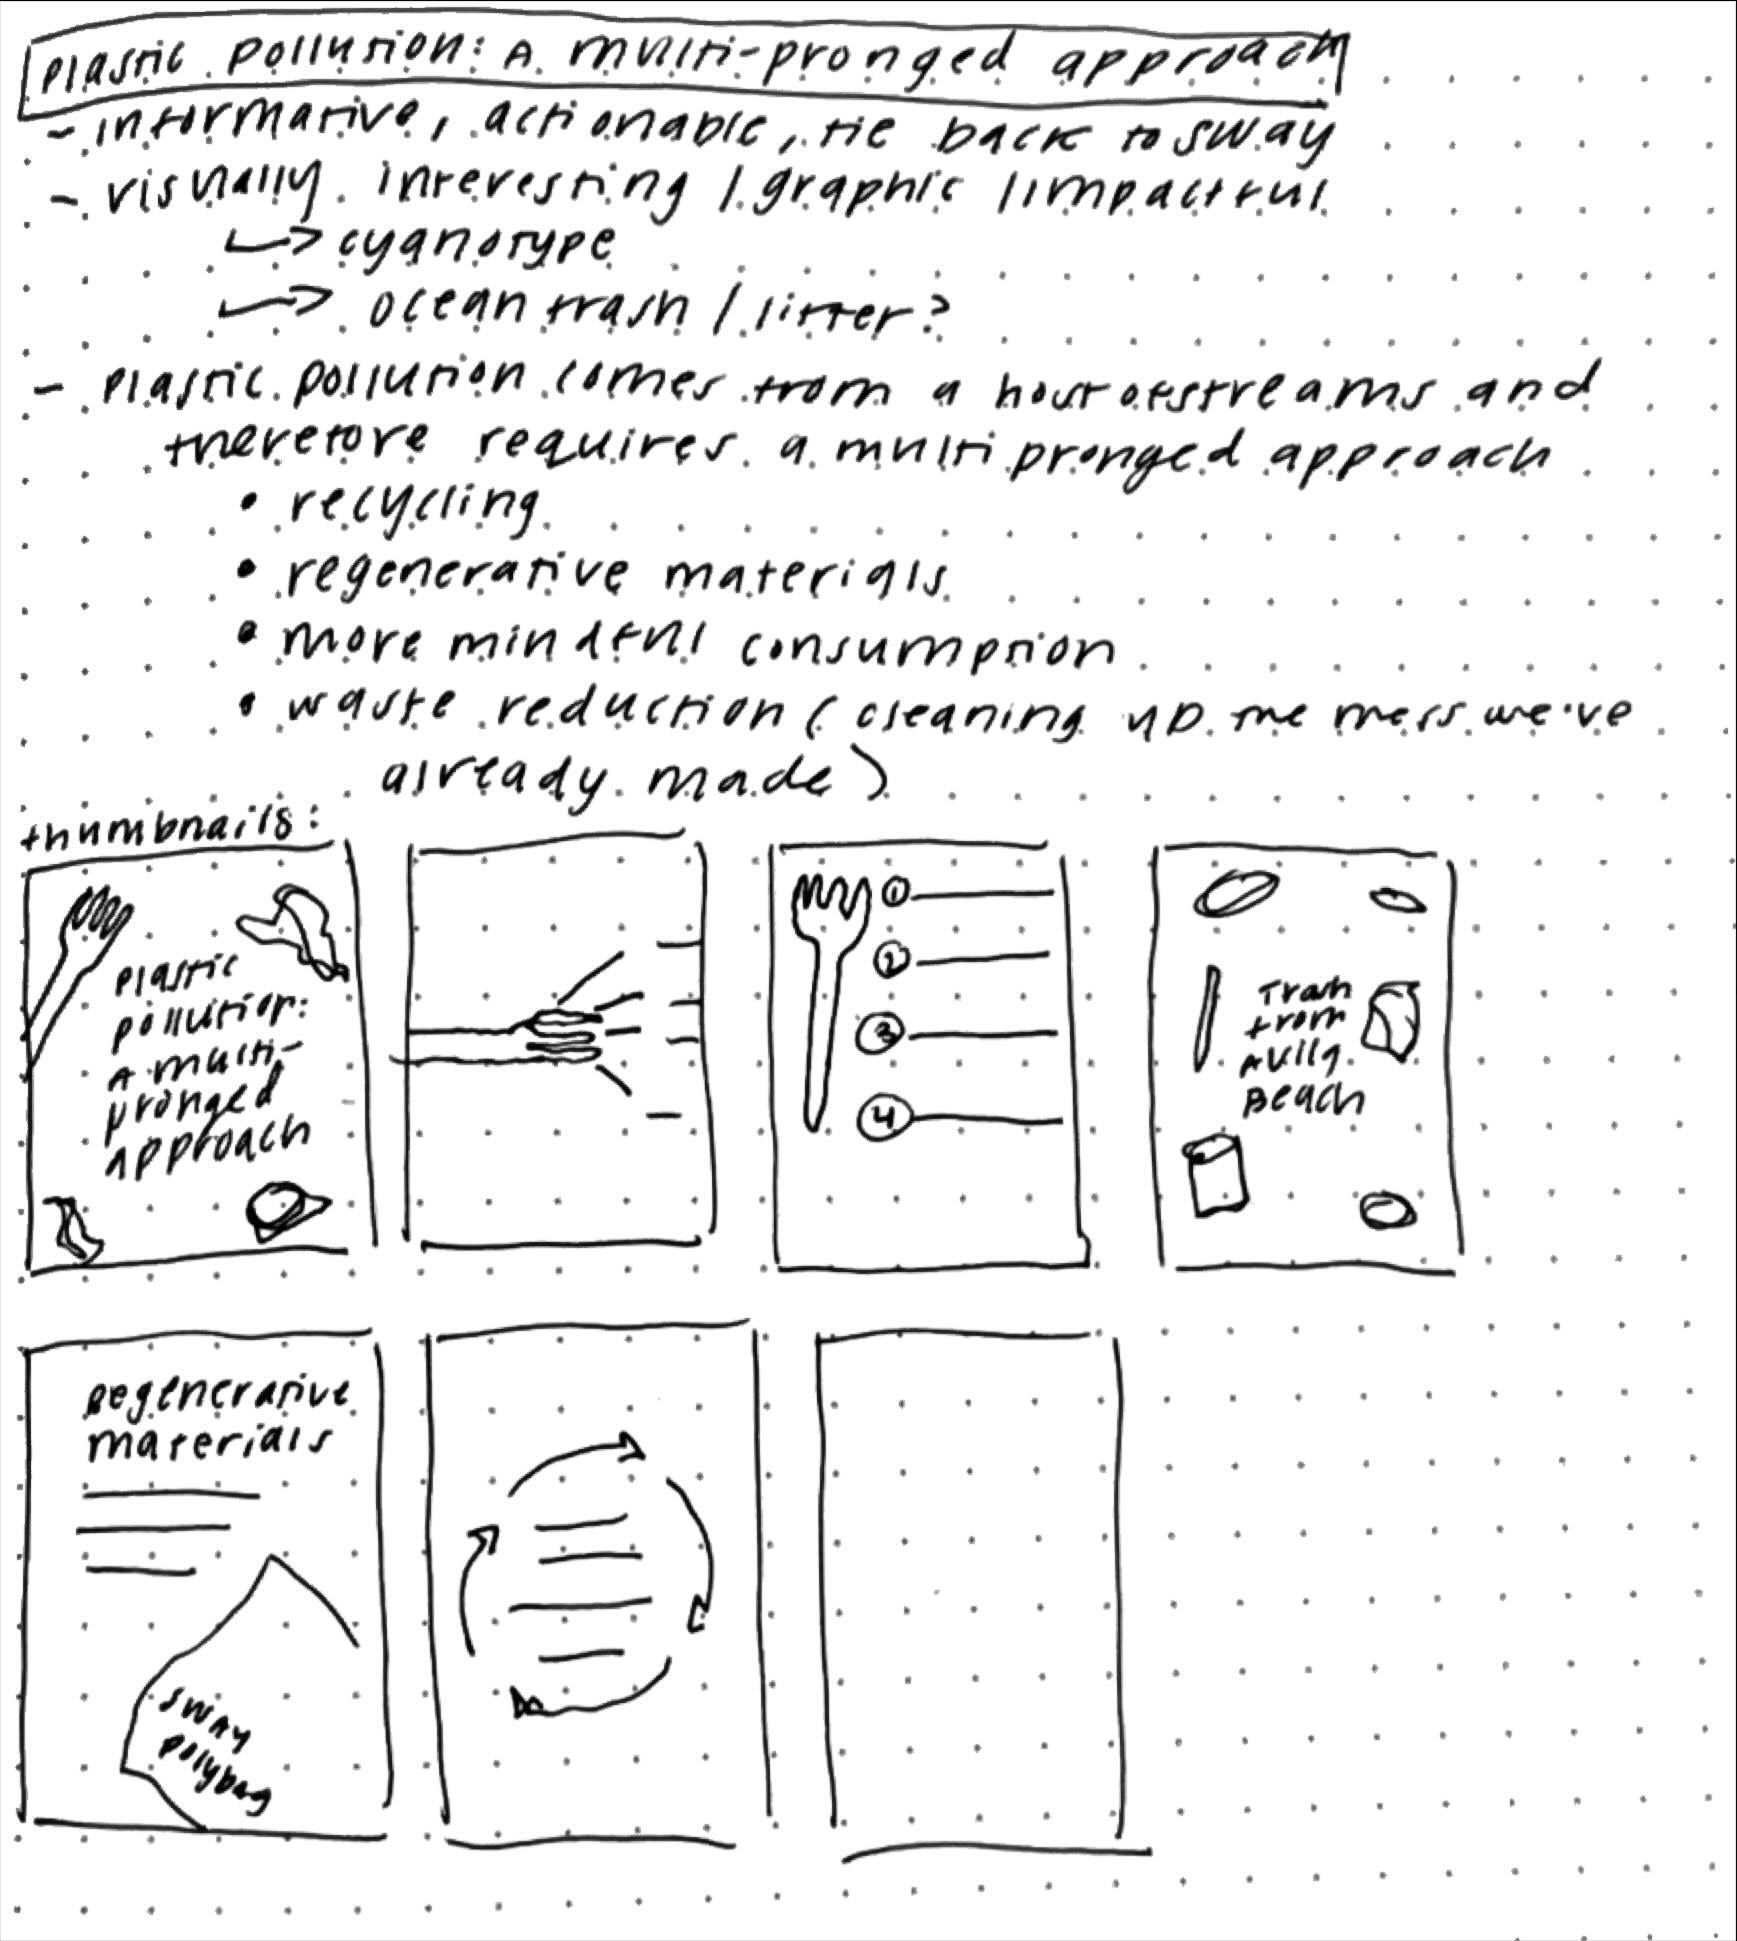 plastic pollution: A multi-pronged approach
- informative, actionable, tie back to sway
- visually interesting / graphic / impactful
↳ cyanotype
↳ ocean trash / litter?
- plastic pollution comes from a host of streams and
therefore requires a multi pronged approach
• recycling
• regenerative materials
• more mindful consumption
• waste reduction (cleaning up the mess we've
already made)
thumbnails:
plastic
pollution:
A multi-
pronged
approach
1
2
3
4
Trash
from
Beach
Regenerative
materials
sway
polybag